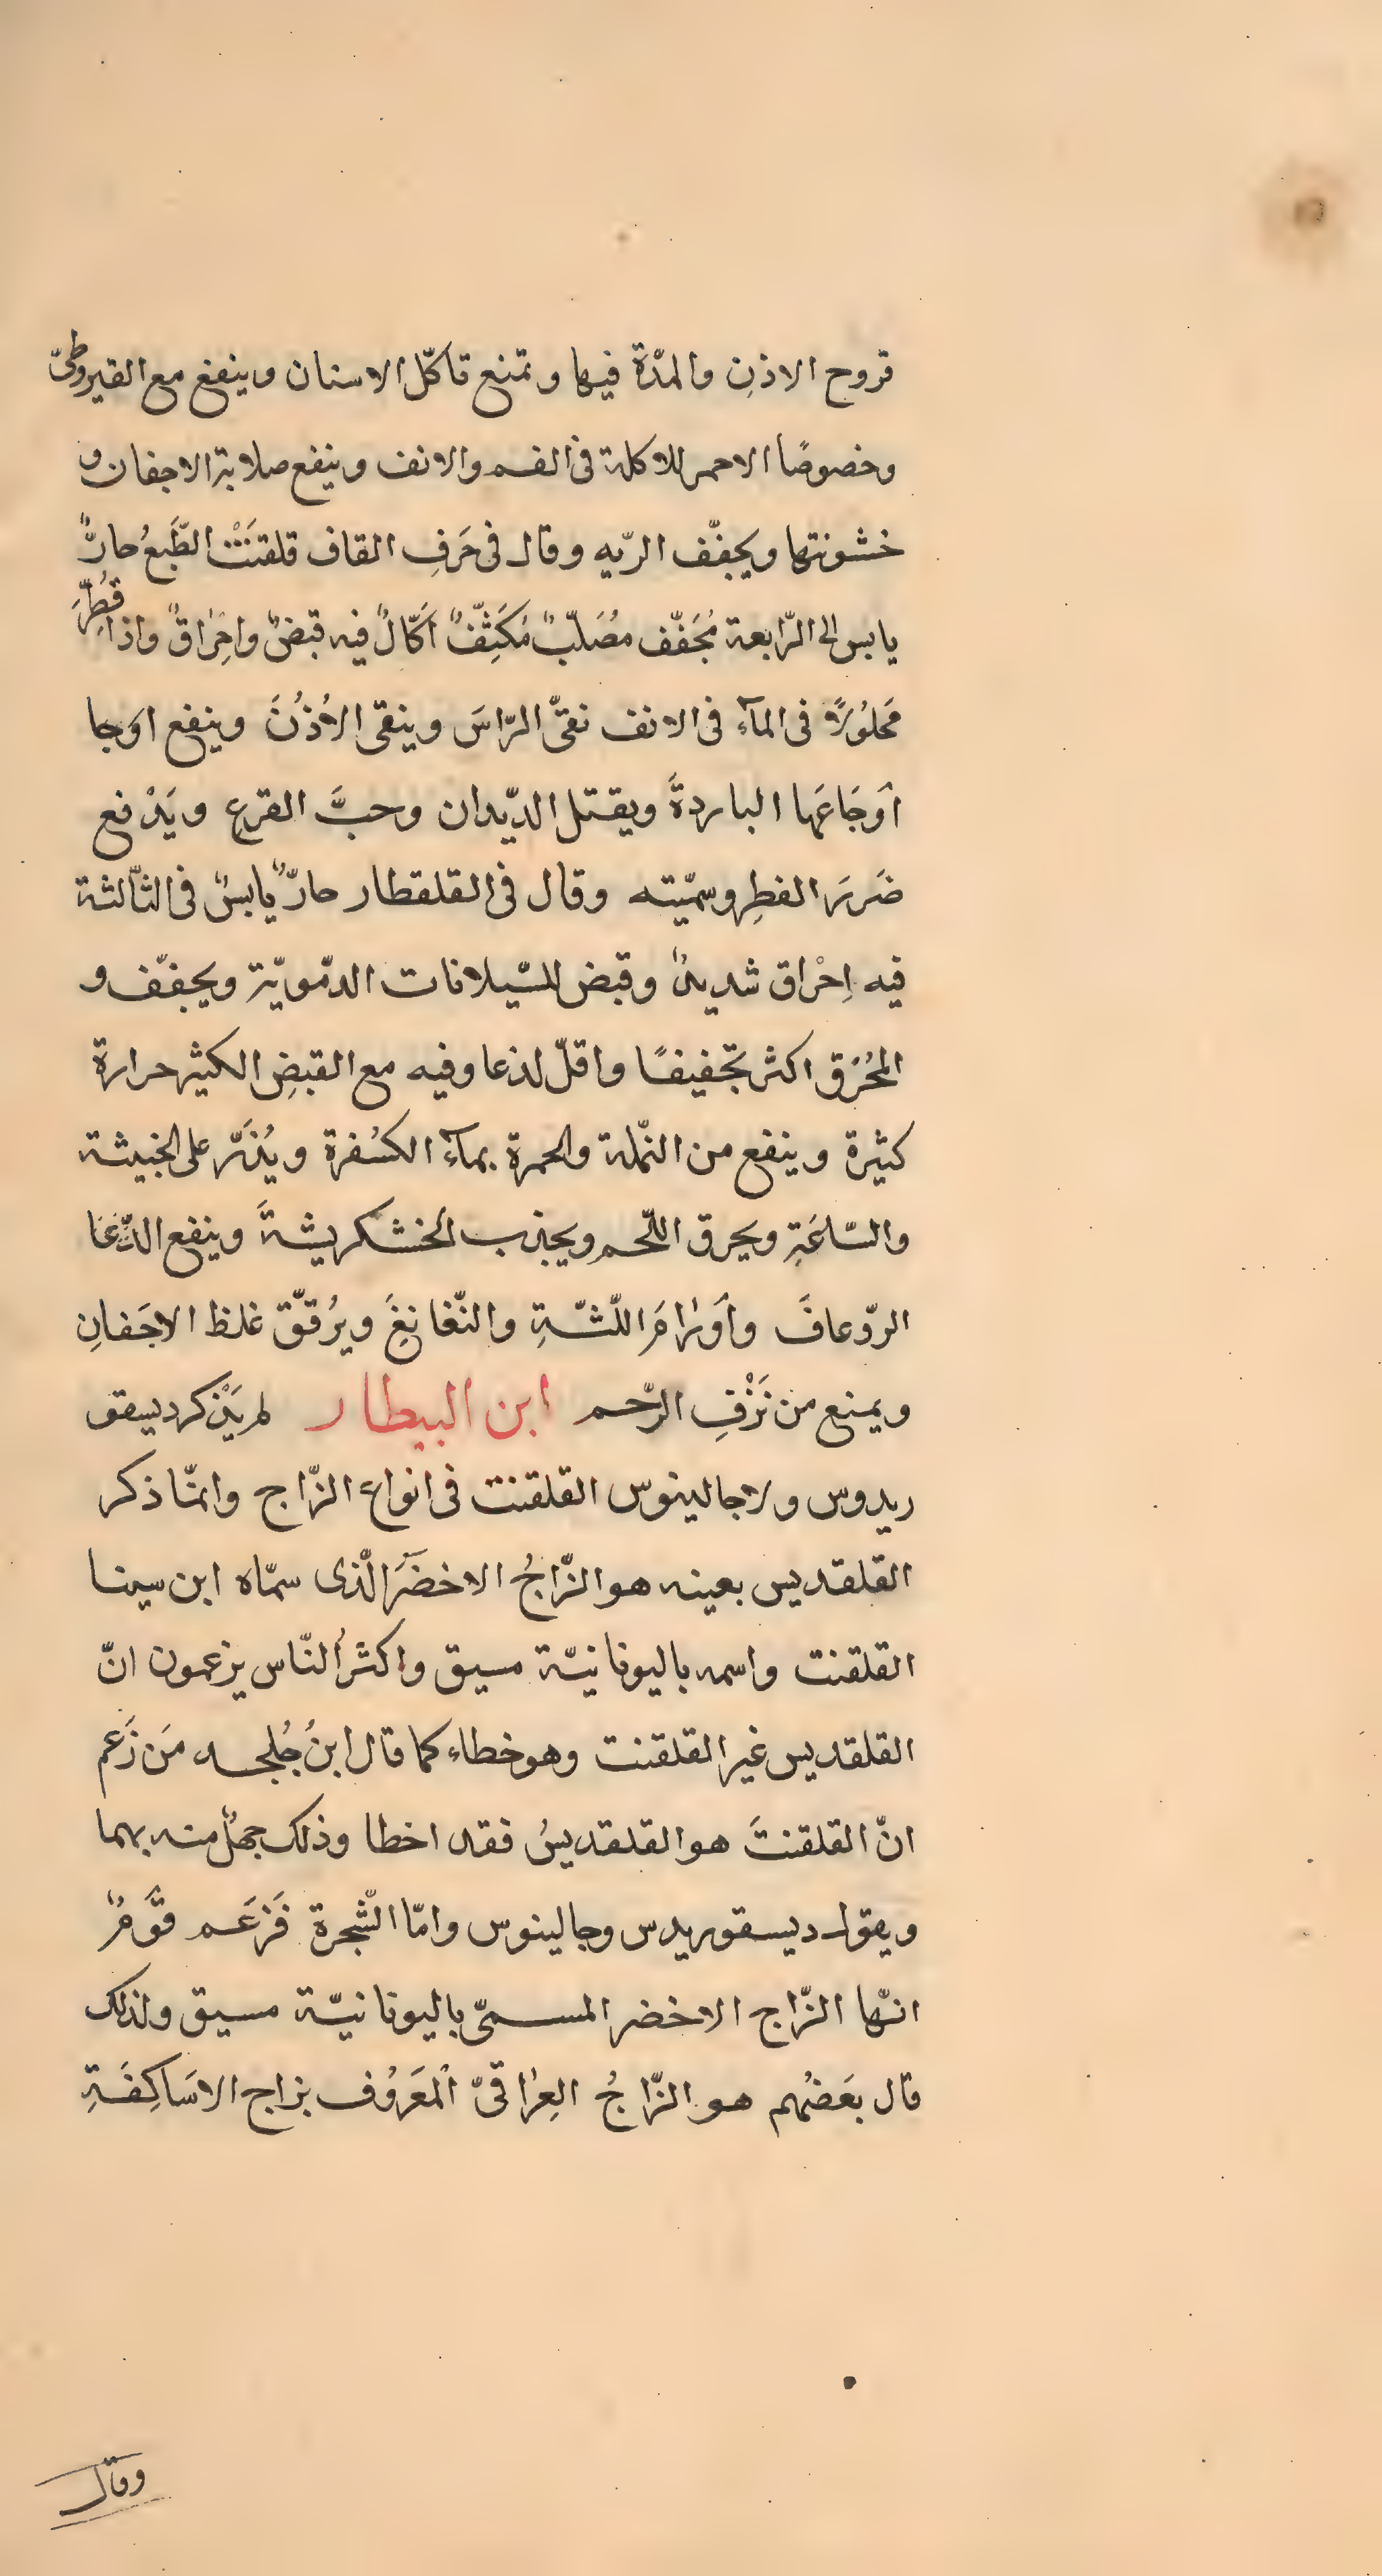 قروح الاذنِ والمدّة فيها وتمنع تاكّل الاسنان وينفع مع القيروطىّ
وخصوصًا الاحمر للاكلة فى الفم والانف وينفع صلابة الاجفان و
خشونتها ويجفّف الريّه وقال فى حَرفِ القاف قلقَنْت الطَّبعُ حارٌّ
يابس الى الرّابعة مُجَفّف مصُلّبٌ مُكَثِّفٌ اَكّالٌ فيه قبضٌ واحِرٰاقٌ واذا قُطِّرَ
مَحلوُلاً فى المآء فى الانف نقىّ الرّاسَ وينقى الاُذنَُ وينفع اوَجا
أوجَاعَها الباردةَ ويقتل الدّيدان وحبَّ القرع ويَدْفع
ضَررَ الفطِر وسميّته وقال فى القلقطار حارٌّ يابسٌ فى الثاّلثة
فيه اِحْراق شديدٌ وقبض للسّيلانات الدمّويّة ويجفّف و
المُحْرَق اكثر تجفيفًا واقلّ لذعا وفيه مع القبضِ الكثير حرارة
كثيرة وينفع من النمّلة والحمرة بمآء الكسُفرة ويُذَرّ على الخبيثة
والسّاعَيةِ ويحرق اللّحم ويجذب الخشكريشةَ وينفع الرُّعَا
الرّوعافَ وأورٰامَ اللّثّةِ والنّغانِغَ ويرُقّق غلظ الاجَفانِ
ويمنع من نَزْفِ الرّحم ابن البيطار لم يَذْكر ديسقو
ريدوس ولا جالينوس القلقنت فى انواع الزّاج وانمّا ذكر
القلقديس بعينه هو الزّاجُ الاخضَرَ الّذى سمّاه ابن سينا
القلقنت واسمه باليونانيّة مسيق واكثَرُ النّاس يزعمون انّ
القلقديس غير القلقنت وهو خطاء كما قال ابنُ جُلجد مَن زَعم
انّ القلقنتَ هو القلقديسُ فقد اخطا وذلك جهلٌ منه بهما
ويقول ديسقوريدس وجالينوس وامّا الشّجرة فَزعَم قَومٌ
انّها الزّاج الاخضر المسمىّ باليونانيّة مسيق ولذلك
قال بعَضُهم هو الزّاجُ العِرٰاقىّ المعَروُف بزاج الاسَاكِفَةِ
وقال